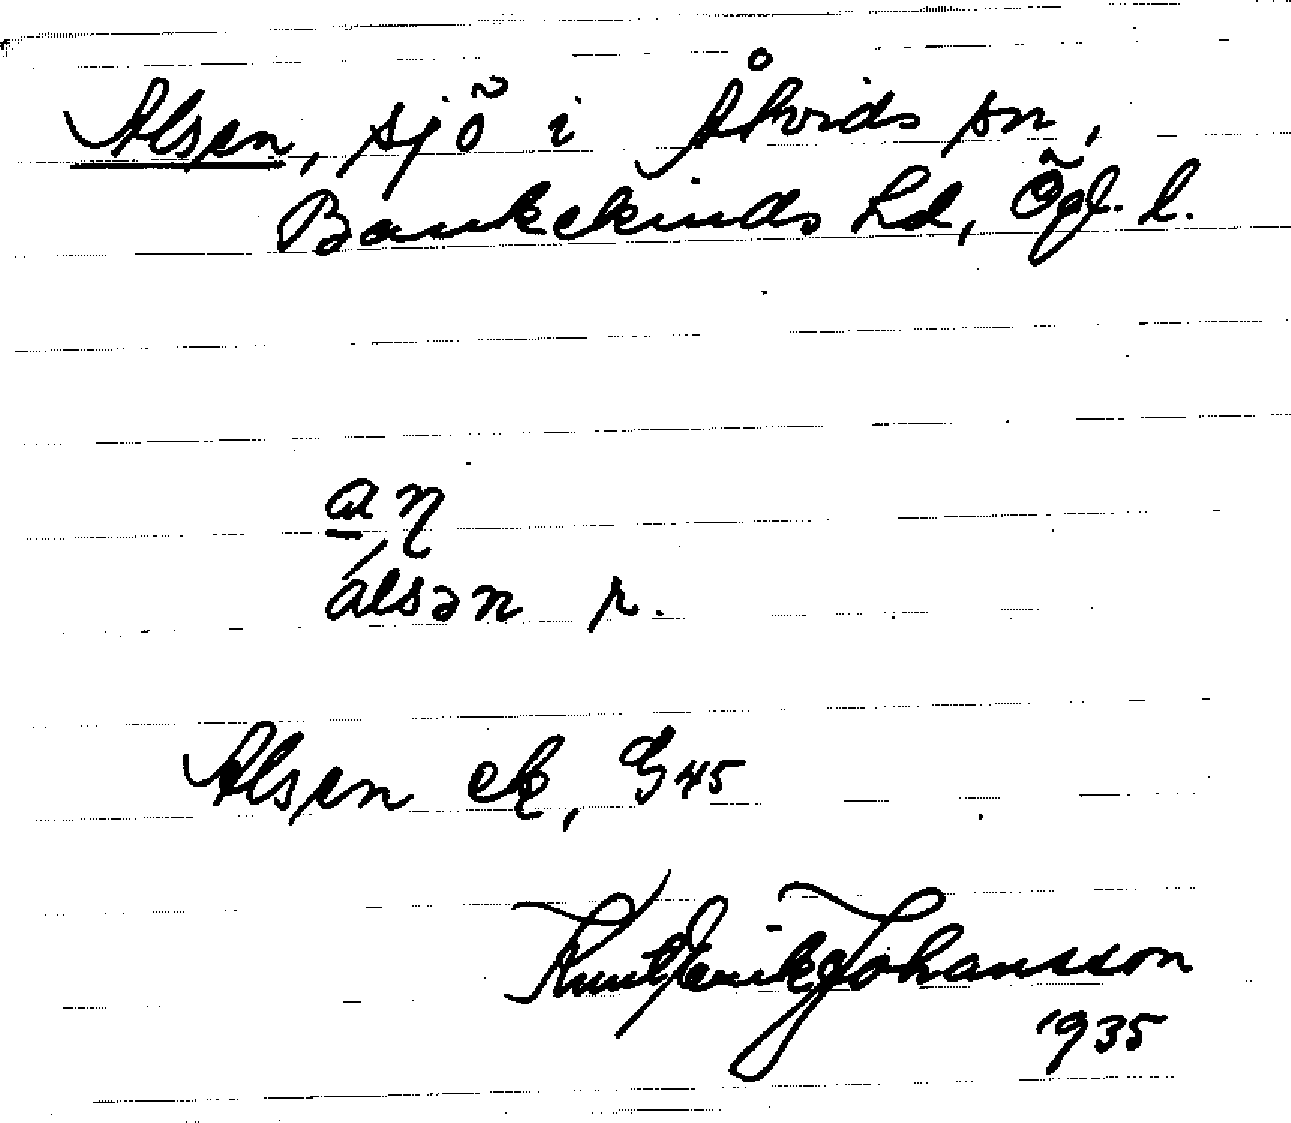 Alsen, sjö i Åtvids sn,
Bankekinds hd, Ögl. l.
a ŋ
álsən r.
Alsen ek, G 45
Knut Erik Johansson
1935